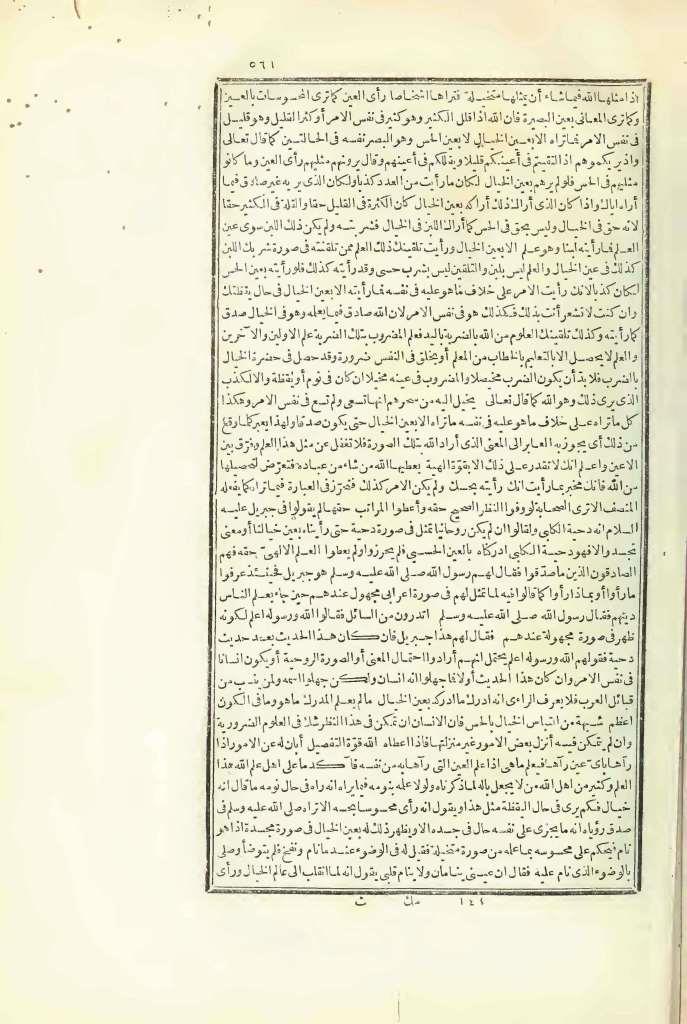 ٥٦١
اذا مثلها الله فيما شاء أن يمثلها متخيلة فتراها أشخاصا رأى العين كما ترى المحسوسات بالعين
وكما ترى المعاني بعين البصيرة فان الله اذا قلل الكثير وهو كثير في نفس الامر أو كثر القليل وهو قليل
في نفس الامر فما تراه الا بعين الخيال لا بعين الحس وهو البصر نفسه في الحالتين كما قال تعالى
واذ يريكموهم اذ التقيتم في أعينكم قليلا ويقللكم في أعينهم وقال يرونهم مثليهم رأى العين وما كانوا
مثليهم في الحس فلو لم يرهم بعين الخيال لكان ما رأيت من العدد كذبا ولكان الذى يريه غير صادق فيما
أراه اياك واذا كان الذى أراك ذلك أراكه بعين الخيال كان الكثرة في القليل حقا والقلة في الكثير حقا
لانه حق في الخيال وليس بحق في الحس كما أراك اللبن في الخيال فشربته ولم يكن ذلك اللبن سوى عين
العلم فما رأيته لبنا وهو علم الا بعين الخيال ورأيت تلقينك ذلك العلم ممن تلقنته في صورة شربك اللبن
كذلك في عين الخيال والعلم ليس بلبن والتلقين ليس بشرب حسى وقد رأيته كذلك فلو رأيته بعين الحس
لكان كذبا لانك رأيت الامر على خلاف ما هو عليه في نفسه فما رأيته الا بعين الخيال في حال يقظتك
وان كنت لا تشعر أنت بذلك فكذلك هو في نفس الامر لان الله صادق فيما يعلمه وهو في الخيال صدق
كما رأيته وكذلك تلقينك العلوم من الله بالضربة باليد فعلم المضروب بتلك الضربة علم الاولين والآخرين
والعلم لا يحصل الا بالتعليم بالخطاب من المعلم أو يخلق في النفس ضرورة وقد حصل في حضرة الخيال
بالضرب فلا بد أن يكون الضرب مخيلا والمضروب في عينه مخيلا ان كان في نوم أو يقظة والا لكذب
الذى يرى ذلك وهو الله كما قال تعالى يخيل اليه من سحرهم انها تسعى ولم تسع في نفس الامر وهكذا
كل ما تراه على خلاف ما هو عليه في نفسه ما تراه الا بعين الخيال حتى يكون صدقا ولهذا يعبر كما وقع
من ذلك أى يجوز به العابر الى المعنى الذى أراد الله بتلك الصورة فلا تغفل عن مثل هذا العلم وفرق بين
الاعين واعلم انك لا تقدر على ذلك الا بقوة الهية يعطيها الله من شاء من عباده فتعرض لتحصيلها
من الله فانك مخبر بما رأيت انك رأيته بحسك ولم يكن الامر كذلك فتحرز في العبارة فيما تراه كما يفعله
المنصف الا ترى الصحابة لو وفوا النظر الصحيح حقه وأعطوا المراتب حقها لم يقولوا في جبريل عليه
السلام انه دحية الكلبى ولقالوا ان لم يكن روحانيا تمثل في صورة دحية حتى رأيناه بعين خيالنا أو معنى
تجسد والا فهو دحية الكلبى ادركناه بالعين الحسى فلم يحرزوا ولم يعطوا العلم الالهى حقه فهم
الصادقون الذين ما صدقوا فقال لهم رسول الله صلى الله عليه وسلم هو جبريل فحينئذ عرفوا
ما رأوا وبماذا رأوا كما قالوا فيه لما تمثل لهم في صورة اعرابى مجهول عندهم حين جاء يعلم الناس
دينهم فقال رسول الله صلى الله عليه وسلم اتدرون من السائل فقالوا الله ورسوله اعلم لكونه
ظهر في صورة مجهولة عندهم فقال لهم هذا جبريل فان كان هذا الحديث بعد حديث
دحية فقولهم الله ورسوله اعلم يحتمل انهم أرادوا احتمال المعنى أو الصورة الروحية أو يكون انسانا
في نفس الامر وان كان هذا الحديث أولا فما جهلوا انه انسان ولكن جهلوا اسمه ولمن ينسب من
قبائل العرب فلا يعرف الراءى انه ادرك ما ادركه بعين الخيال مالم يعلم المدرك ما هو وما في الكون
اعظم شبهة من التباس الخيال بالحس فان الانسان ان تمكن في هذا النظر شك في العلوم الضرورية
وان لم يتمكن فيه أنزل بعض الامور غير منزلتها فاذا اعطاه الله قوة التفصيل أبان له عن الامور اذا
رآها باى عين رآها فيعلم ما هى اذا علم العين التى رآها به من نفسه فآكد ما على اهل علم الله هذا
العلم وكثير من اهل الله من لا يجعل باله لما ذكرناه ولولا علمه بنومه فيما يراه انه رآه في حال نومه ما قال انه
خيال فكم يرى في حال اليقظة مثل هذا ويقول انه رأى محسوسا بحسه الا تراه صلى الله عليه وسلم في
صدق رؤياه انه ما يجرى على نفسه حال في جسده الا ويظهر ذلك له بعين الخيال في صورة مجسدة اذا هو
نام فيحكم على محسوسه بما علمه من صورة متخيلة فقيل له في الوضوء عند ما نام ونفخ فلم يتوضأ وصلى
بالوضوء الذى نام عليه فقال ان عينى ينامان ولا ينام قلبى يقول انه لما انقلب الى عالم الخيال ورأى
١٤١ مك ث